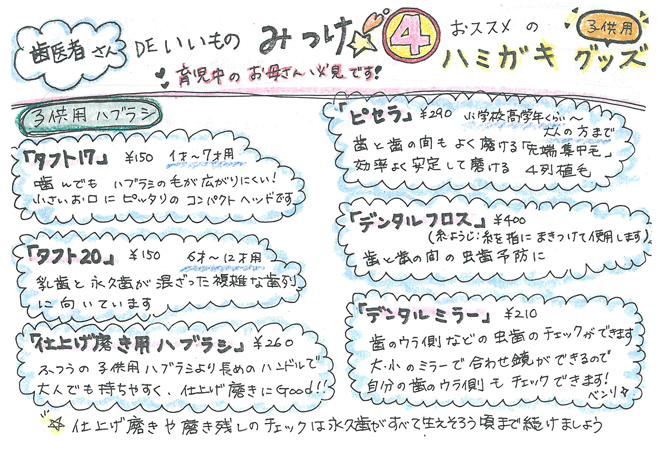 歯医者さん DE いいもの みつけ ④ おススメの 子供用
ハミガキ グッズ
育児中の お母さん 必見です!
子供用ハブラシ
「タフト17」 ¥150 1才〜7才用
噛んでも ハブラシの毛が広がりにくい!
小さいお口に ピッタリの コンパクトヘッドです
「タフト20」 ¥150 6才〜12才用
乳歯と永久歯が 混ざった複雑な歯列
に向いています
「仕上げ磨き用ハブラシ」 ¥260
ふつうの 子供用ハブラシより長めのハンドルで
大人でも持ちやすく、仕上げ磨きにGood!!
「ピセラ」 ¥290 小学校高学年くらい〜
大人の方まで
歯と歯の間もよく磨ける「先端集中毛」
効率よく安定して磨ける 4列植毛
「デンタルフロス」 ¥400
(糸ようじ:糸を指にまきつけて使用します)
歯と歯の間の虫歯予防に
「デンタルミラー」 ¥210
歯のウラ側などの虫歯のチェックができます
大・小のミラーで合わせ鏡ができるので
自分の歯のウラ側もチェックできます!
ベンリ
仕上げ磨きや磨き残しのチェックは永久歯がすべて生えそろう頃まで続けましょう